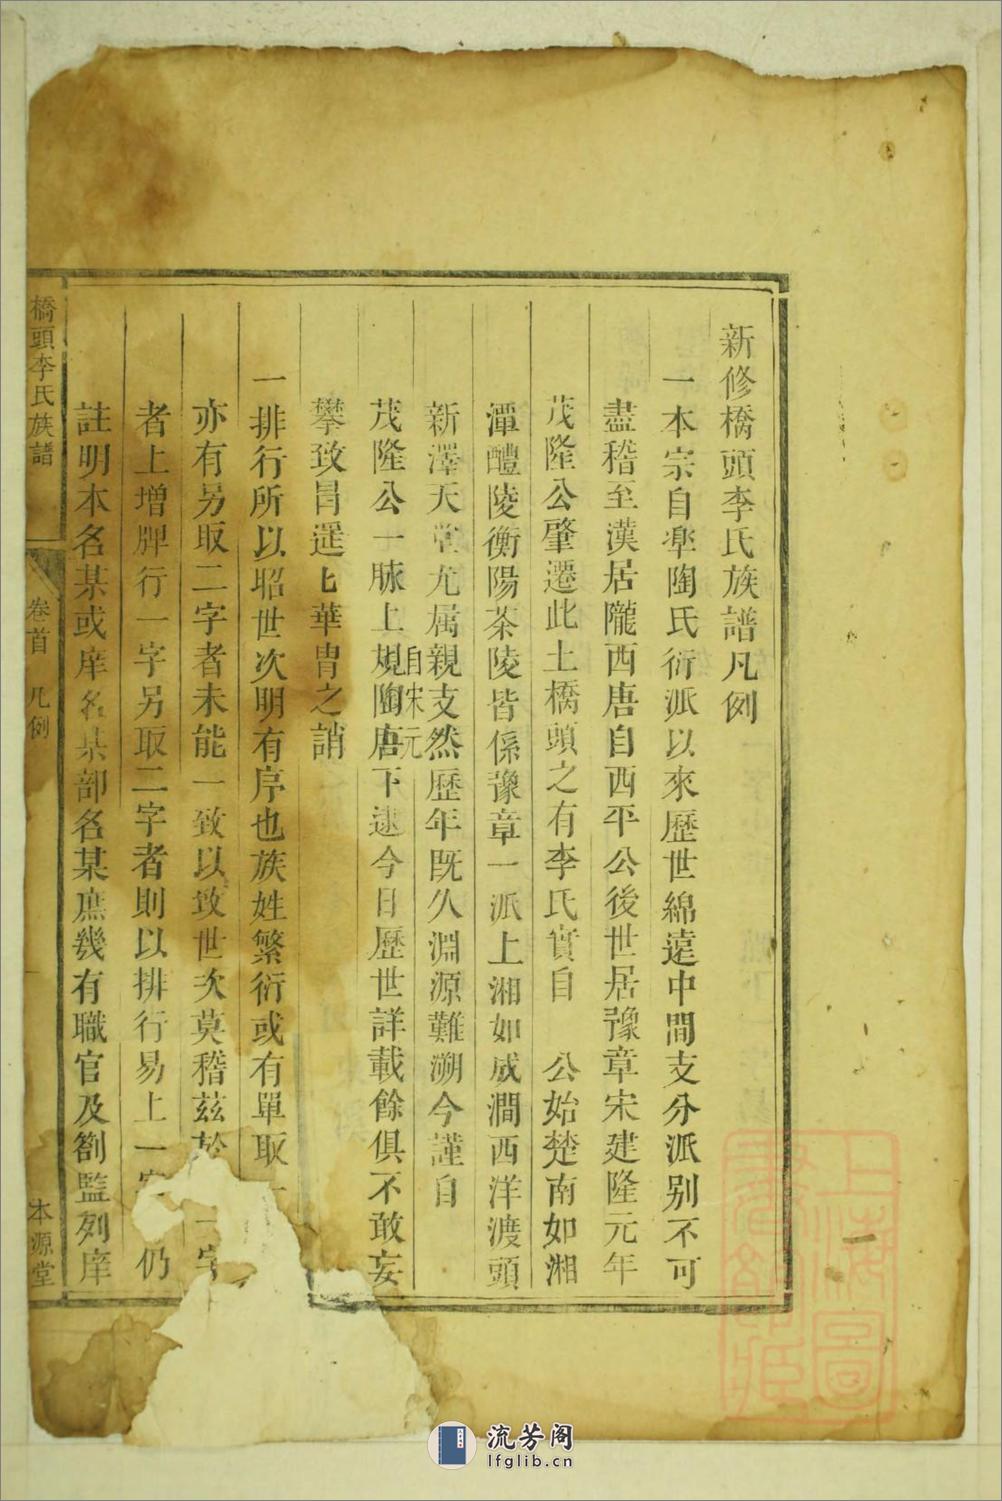 新修橋頭李氏族譜凡例
一本宗自陶氏衍派以來歷世綿遠中間支分派別不可
盡稽至漢居隴西唐自西平公後世居豫章宋建隆元年
茂隆公肇遷此土橋頭之有李氏實自 公始楚南如湘
潭醴陵衡陽茶陵皆係豫章一派上湘如咸澗西洋渡頭
新澤天堂尤属親支然歷年既久淵源難溯今謹自
自宋元
茂隆公一脉上規陶唐下逮今日歷世詳載餘俱不敢妄
攀致冒遥遥華胄之誚
一排行所以昭世次明有序也族姓繁衍或有單取一
亦有另取二字者未能一致以致世次莫稽玆於一字
者上增牌行一字另取二字者則以排行易上一字仍
註明本名某或庠名某部名某庶幾有職官及劄監列庠
橋頭李氏族譜
卷首 凡例
本源堂
上海圖書館藏
流芳阁
lfglib.cn